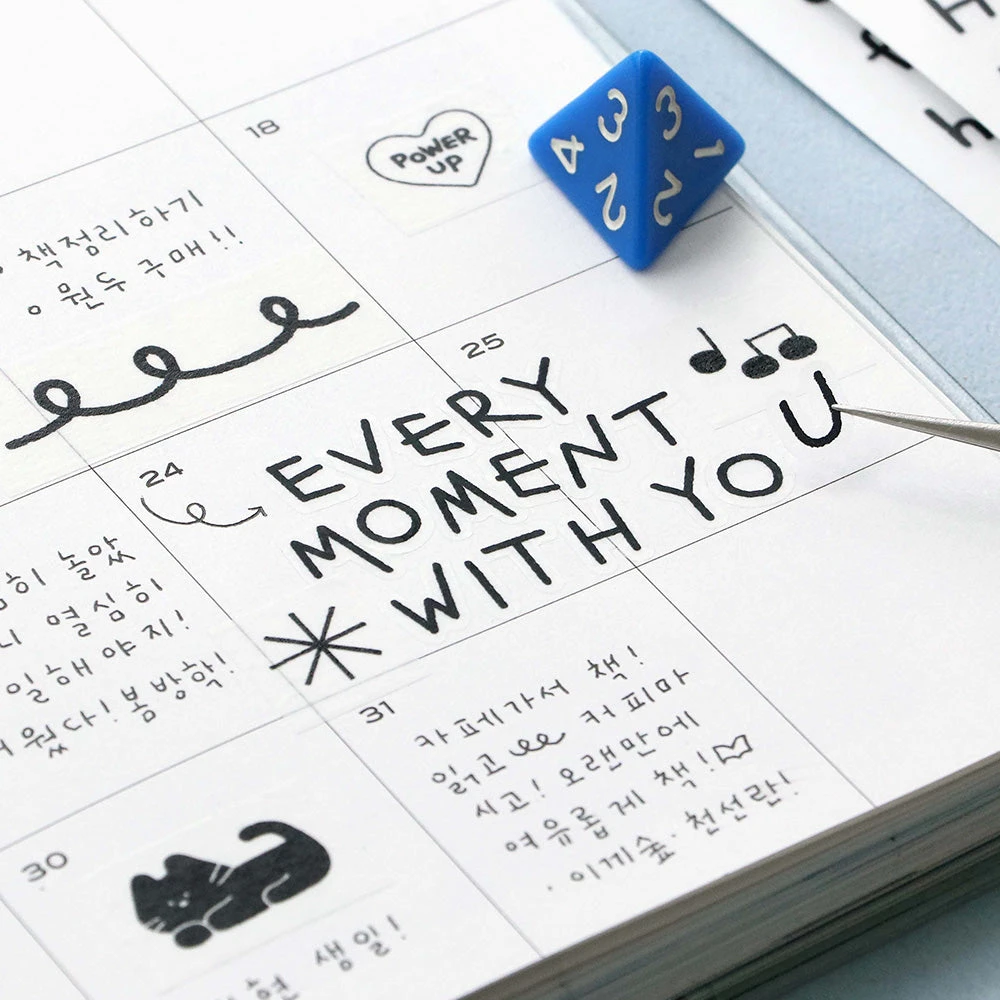 18
POWER
UP
3 3
4 1
2 2
책정리하기
원두 구매!!
25
24
EVERY
MOMENT
WITH YOU
놀았
열심히
일해야지!
웠다! 봄방학!
31
카페가서 책!
읽고 커피마
시고! 오랜만에
여유롭게 책!
이끼숲· 천선란!
30
현 생일!
f
h